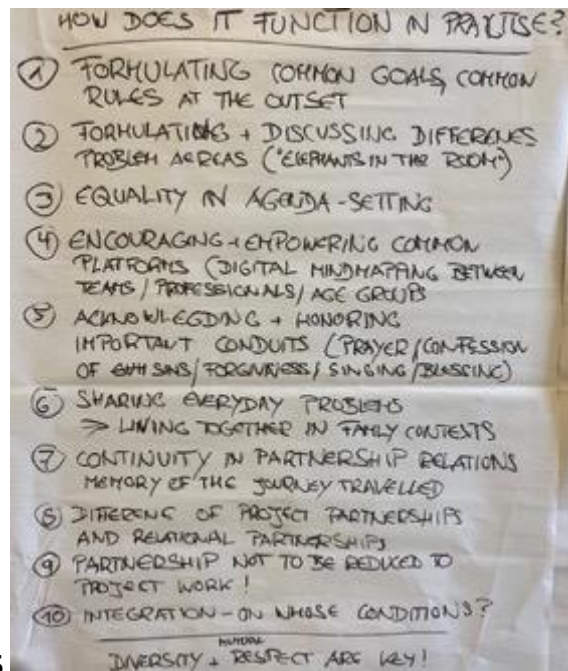 HOW DOES IT FUNCTION IN PRACTISE?
① FORMULATING COMMON GOALS, COMMON
RULES AT THE OUTSET
② FORMULATING + DISCUSSING DIFFERENCES
PROBLEM AEREAS ("ELEPHANTS IN THE ROOM")
③ EQUALITY IN AGENDA-SETTING
④ ENCOURAGING + EMPOWERING COMMON
PLATFORMS (DIGITAL MINDMAPPING BETWEEN
TEAMS / PROFESSIONALS / AGE GROUPS
⑤ ACKNOWLEGDING + HONORING
IMPORTANT CONDUITS (PRAYER / CONFESSION
OF SINS / FORGIVNESS / SINGING / BLESSING)
⑥ SHARING EVERYDAY PROBLEMS
⇒ LIVING TOGETHER IN FAMILY CONTESTS
⑦ CONTINUITY IN PARTNERSHIP RELATIONS
MEMORY OF THE JOURNEY TRAVELLED
⑧ OF PROJECT PARTNERSHIPS
AND RELATIONAL PARTNERSHIPS
⑨ PARTNERSHIP NOT TO BE REDUCED TO
PROJECT WORK !
⑩ INTEGRATION - ON WHOSE CONDITIONS?
MUTUAL
DIVERSITY + RESPECT ARE KEY!